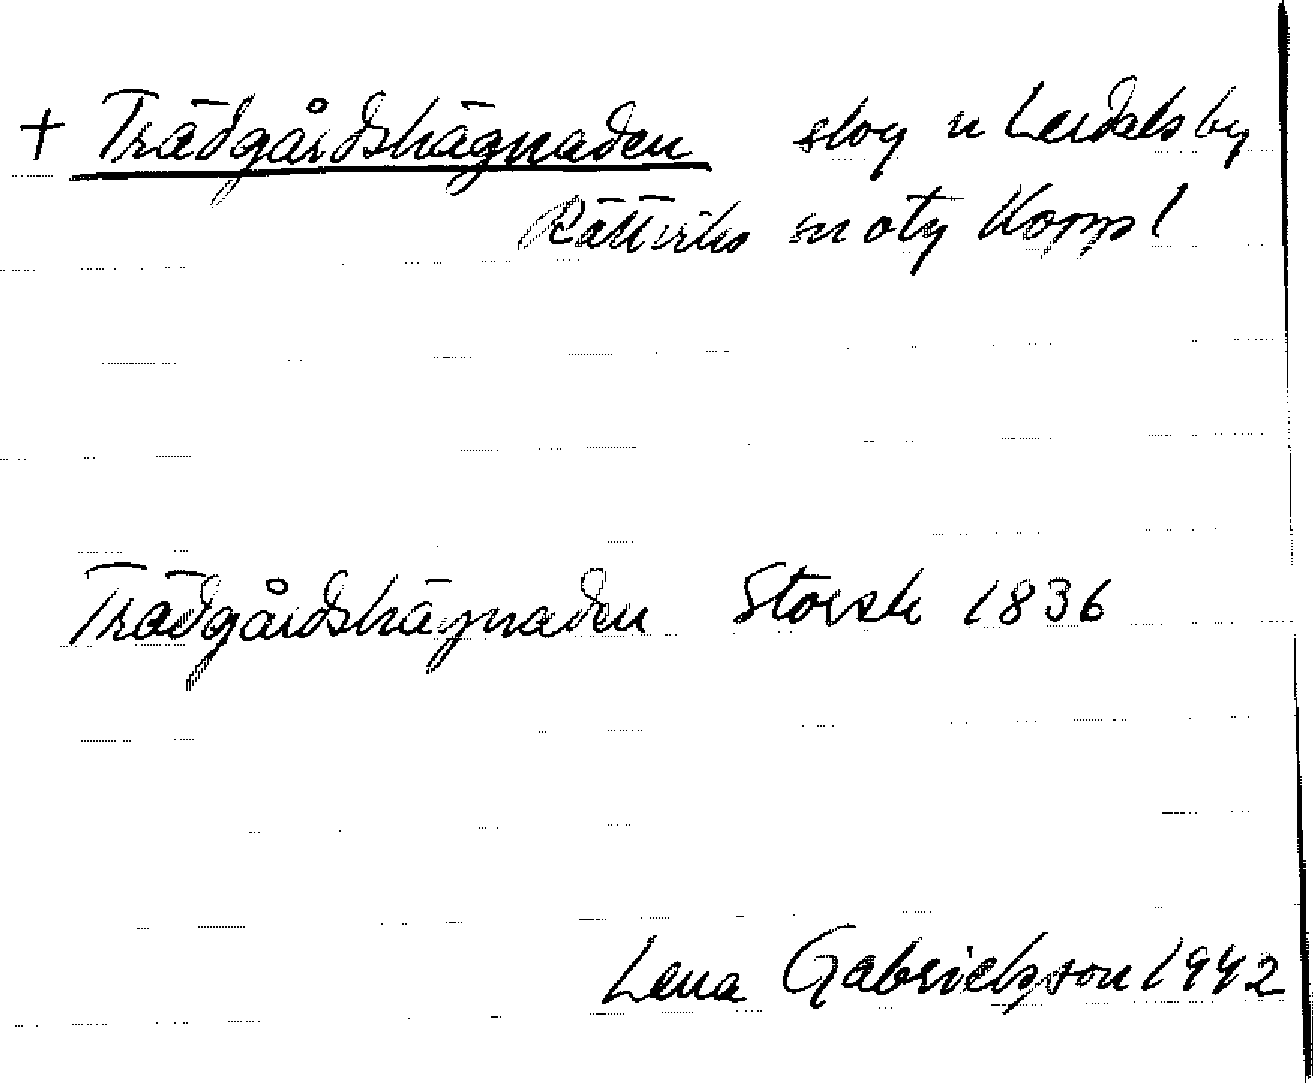 + Trädgårdshägnaden skog u Lerdals by
Rättviks sn o tg Kopp l
Trädgårdshägnaden Storsk 1836
Lena Gabrielsson 1942